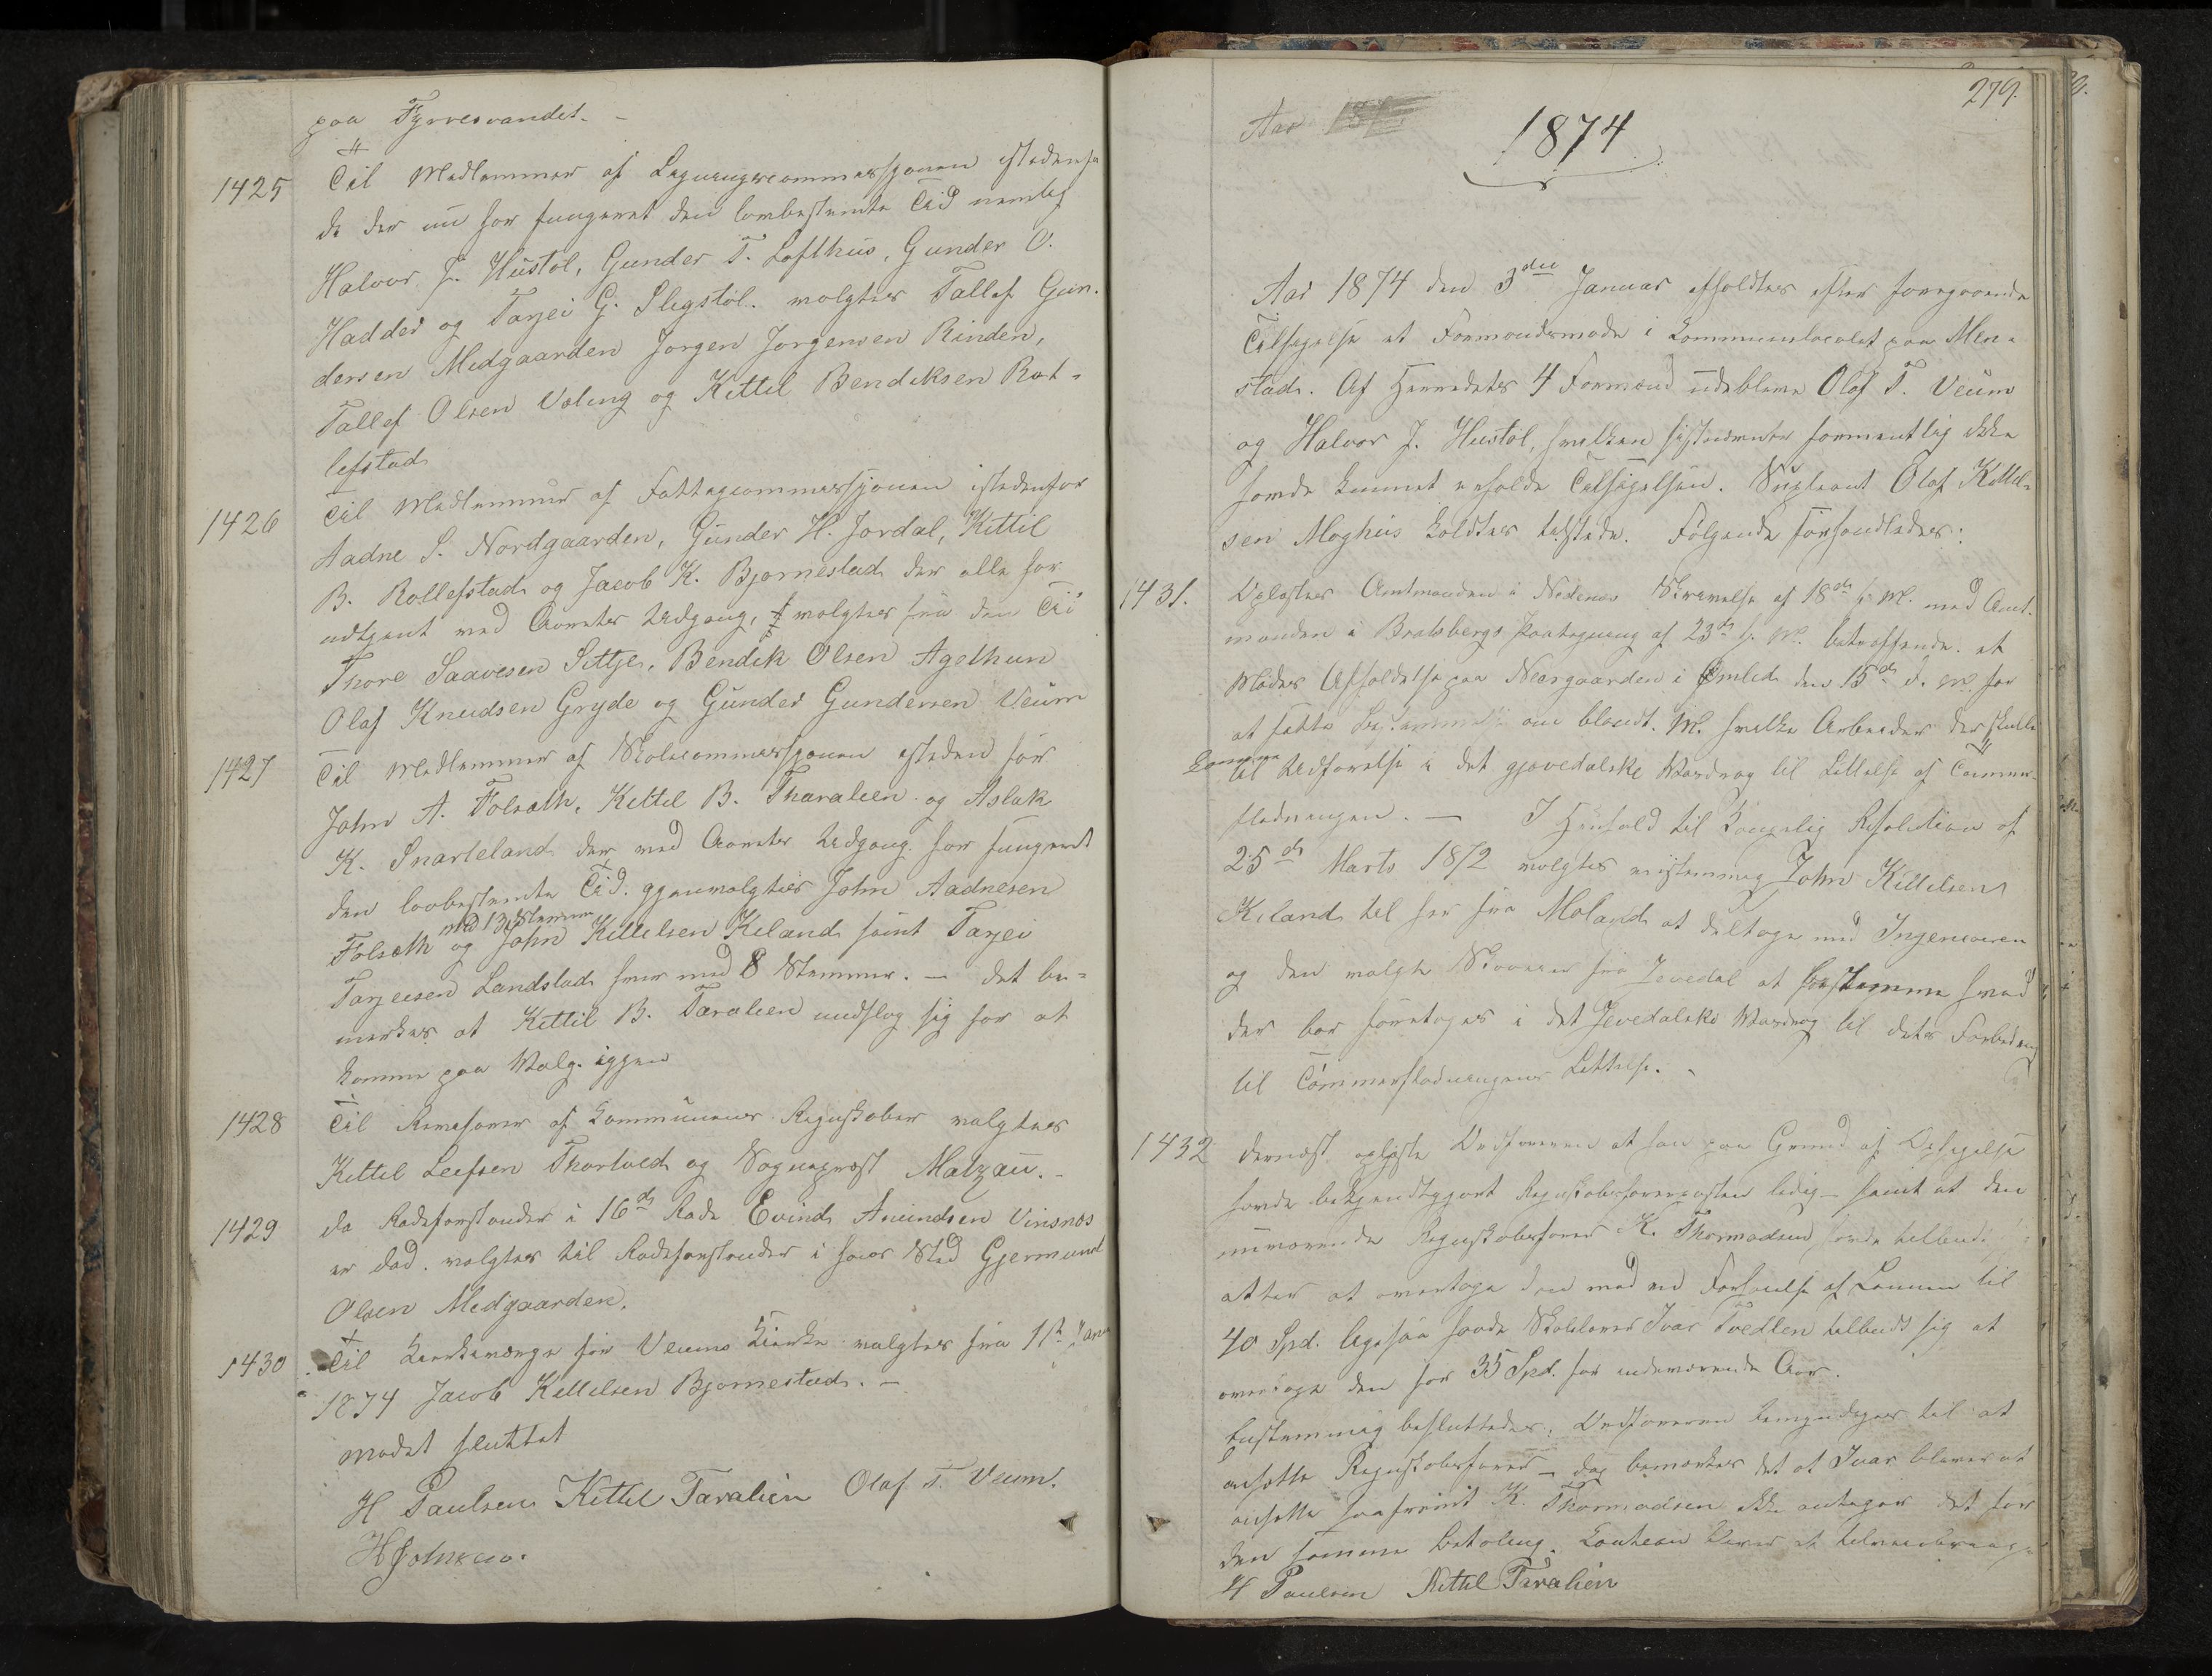 paa Fyrresvandet. –
1425 Til Medlemmer af Ligningscommissjonen istedenfor
de der nu har fungeret den lovbestemte Tid nemlig
Halvor J. Hustøl, Gunder T. Lofthus, Gunder O.
Haddes og Tarjei G. Slegstøl. valgtes Tallef Gun-
dersen Midgaarden Jørgen Jørgensen Rinden,
Tallef Olsen Våling og Kittil Bendiksen Rol-
lefstad
1426 Til Medlemmer af Fattigcommissjonen istedenfor
Aadne S. Nordgaarden, Gunder H. Jordal, Kittil
B. Rollefstad og Jacob K. Bjørnestad der alle har
udtjent ved Aarets Udgang, valgtes fra den Tid
Thore Saavesen Sittje, Bendik Olsen Agelhun
Olaf Knudsen Gryde og Gunder Gundersen Veum
1427 Til Medlemmer af Skolecommissjonen isteden for
John A. Folsæth, Kittil B. Tharalien og Aslak
K. Snarteland der ved Aarets Udgang har fungeret
den lovbestemte Tid. gjenvalgtes John Aadnesen
med 13 Stemmer
Folsæth og John Kittilsen Kiland samt Tarjei
Tarjeisen Landstad hver med 8 Stemmer. – det be-
mærkes at Kittil B. Taralien undslog sig for at
komme paa Valg igjen
1428 Til Revisorer af Kommunens Regnskaber valgtes
Kittil Leifsen Thortved og Sogneprest Matzau. –
1429 da Rodeforstander i 16de Rode Evind Amundsen Vinsnæs
er død. valgtes til Rodeforstander i hans Sted Gjermund
Olsen Midgaarden.
1430 Til Kirkeværge for Veums Kirke valgtes fra 1st Janr
1874 Jacob Kittilsen Bjørnestad. –
Mødet sluttet
H Paulsen Kittil Taralien Olaf T. Veum.
H Johnsen.
279.
Aar
1874
Aar 1874 den 3die Januar afholdtes efter foregaaende
Tilsigelse et Formandsmøde i Kommunelocalet paa Mon-
stad. Af Herredets 4 Formænd udebleve Olaf T. Veum
og Halvor J. Hustøl, hvilken sidstnævnte formentlig ikke
havde kunnet erholde Tilsigelsen. Supleant Olaf Kittil-
sen Moghus holdtes tilstede. Følgende forhandledes:
1431. Oplæstes Amtmanden i Nedenes Skrivelse af 18de f. M. med Amt-
manden i Bratsbergs Paategning af 23de f. M. betræffende et
Mødes Afholdelse paa Neargaarden i Omlid den 15de d. M. for
at fatte Bestemmelse om blandt. M. hvilke Arbeider der skulle
komme
til Udførelse i det gjøvedalske Vasdrag til Lettelse af Tømmer-
flødningen. – I Henhold til Kongelig Resolution af
25de Marts 1872 valgtes enstemmig John Kittilsen
Kiland til her fra Moland at deltage med Ingenieuren
og den valgte Skovaaer fra Jøvedal at bestemme hvad
der bør foretages i det Jøvedalske Vasdrag til dets Forbedring
til Tømmerflødningens Lettelse. –
1432 dernæst oplyste Ordføreren at han paa Grund af Opsigelse
havde bekjendtgjort Regnskabsførerposten ledig – samt at den
nuværende Regnskabsfører K. Thormodsen havde tilbudt
atter at overtage den med en Forhøielse af Lønnen til
40 Spd. ligesaa havde Skolelærer Ivar Tvedten tilbudt sig at
overtage den for 35 Spd. for indeværende Aar.
Enstemmig besluttedes: Ordføreren bemyndiges til at
ansætte Regnskabsfører – dog bemærkes det at Ivar bliver at
ansætte saafremt K. Thormodsen ikke antager det for
den samme Betaling.
H Paulsen Kittil Taralien